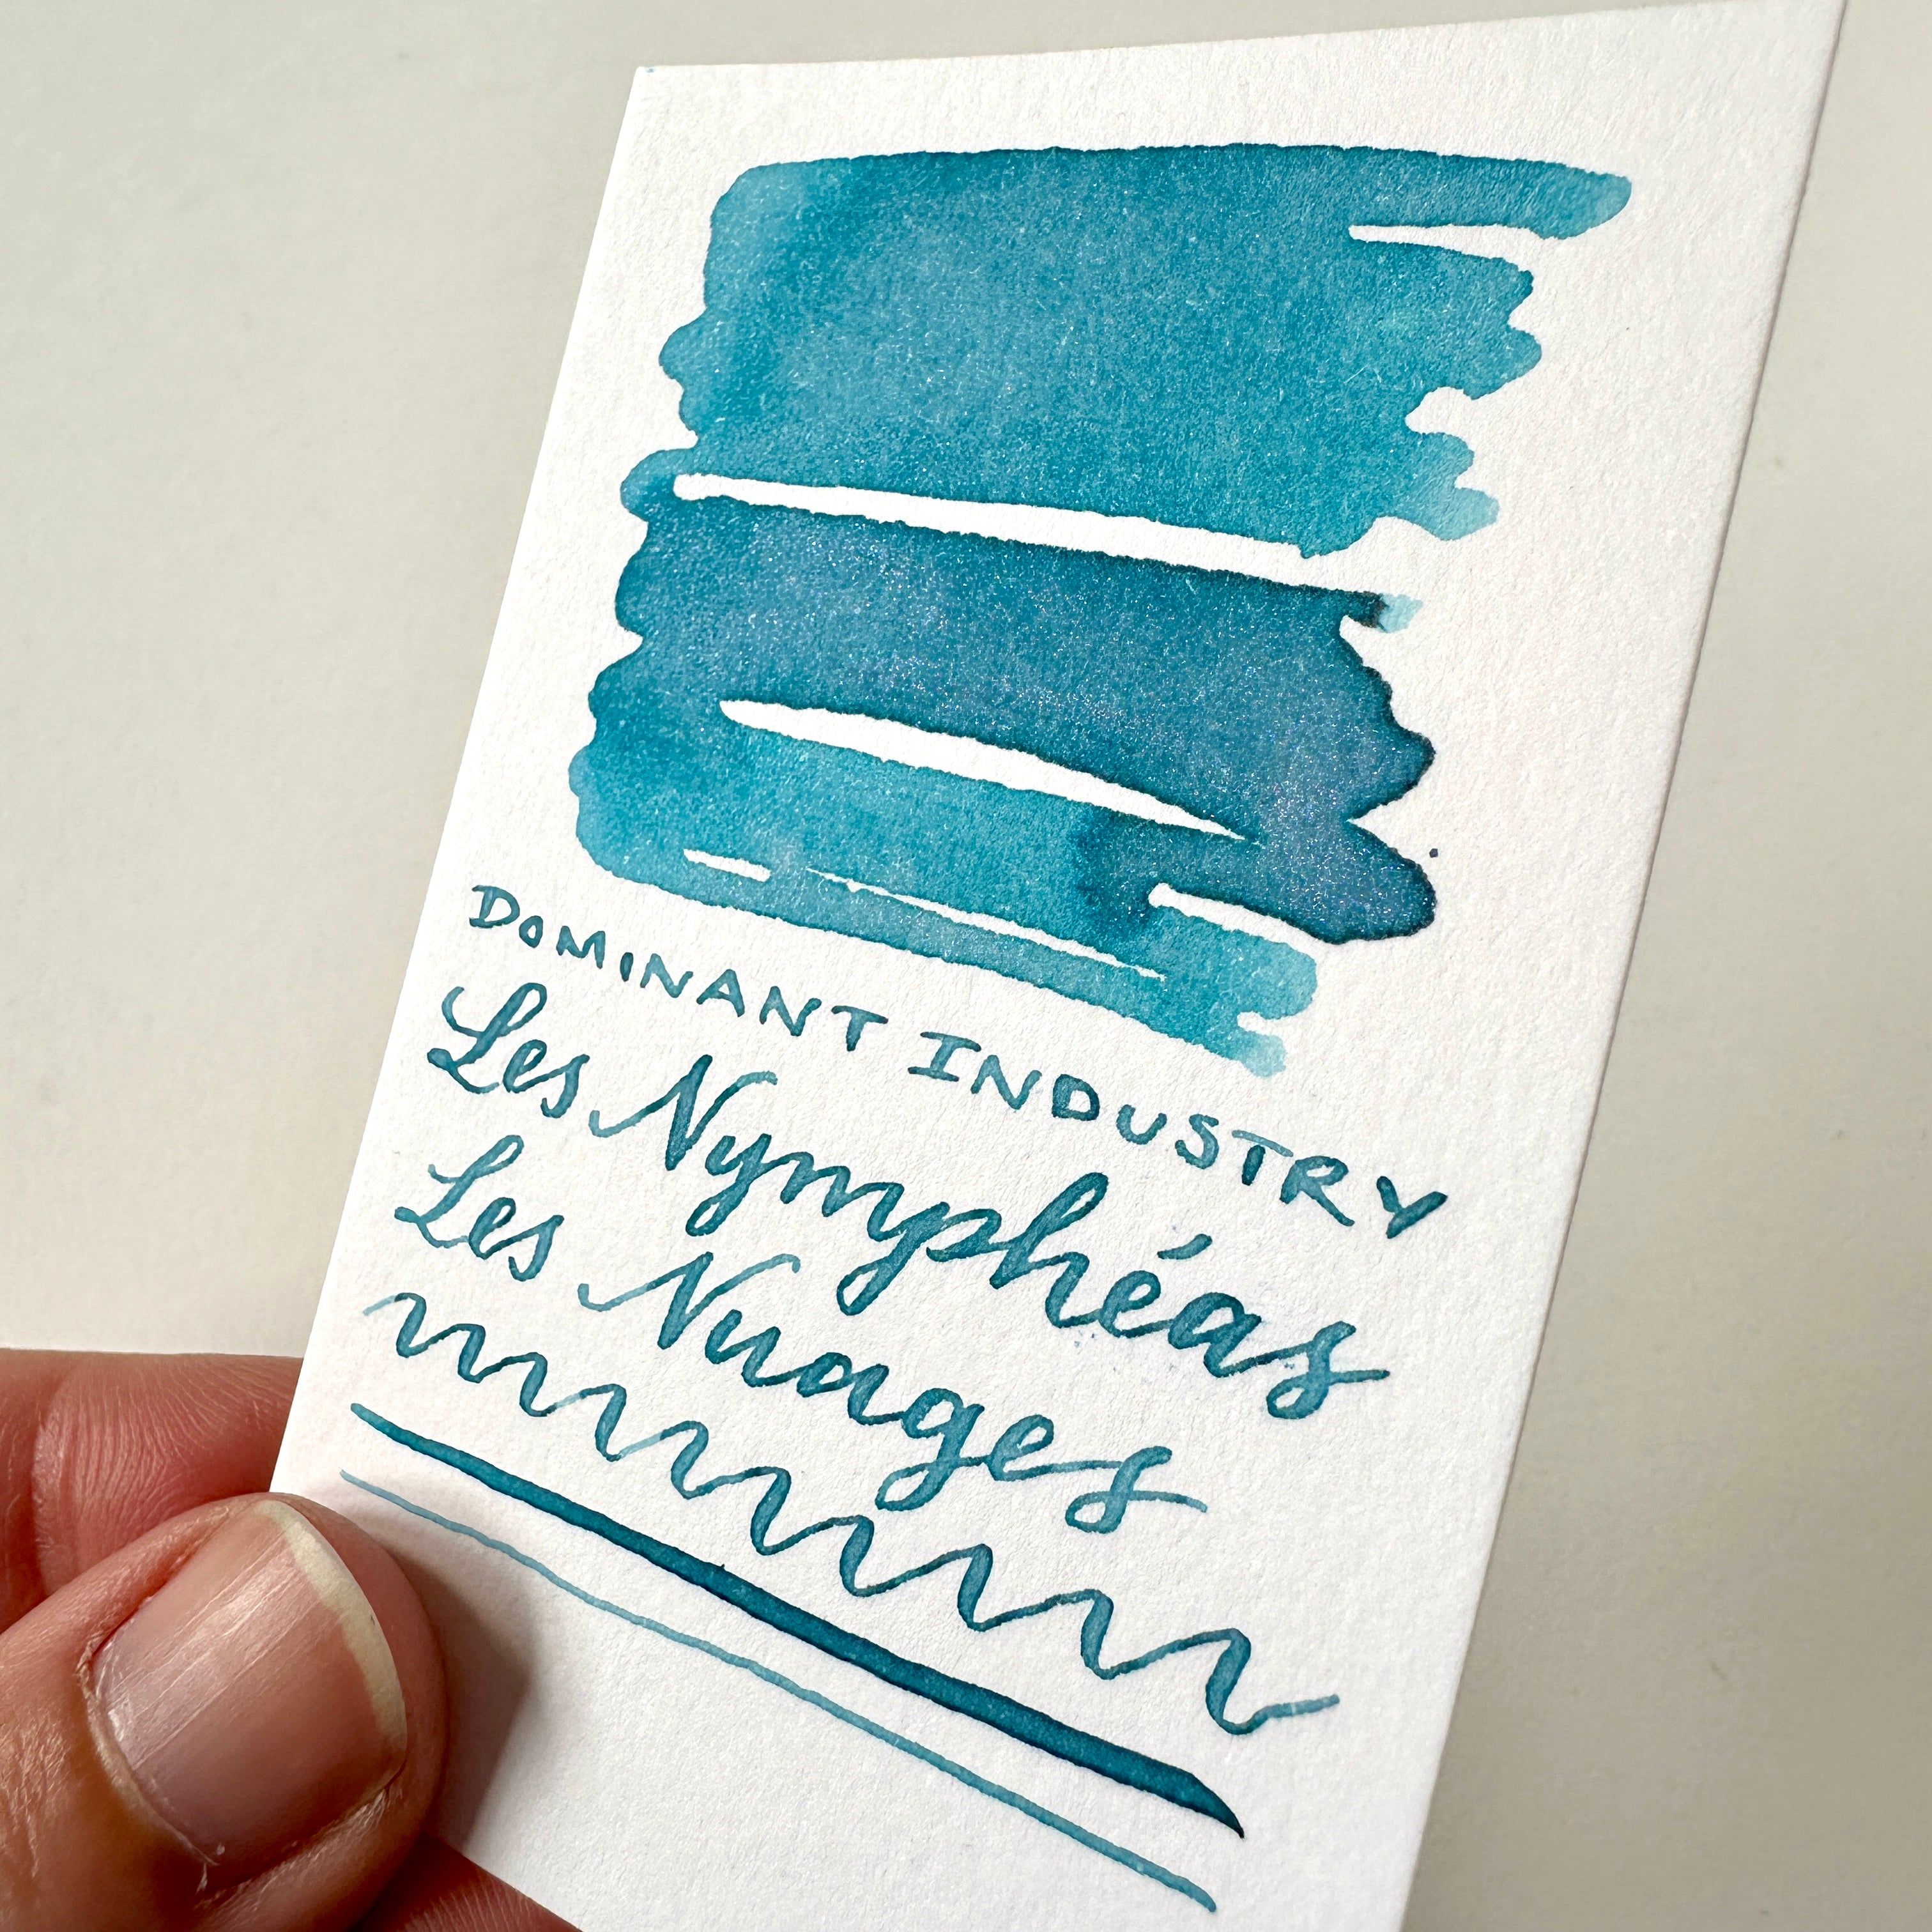 DOMINANT INDUSTRY
Les Nymphéas
Les Nuages